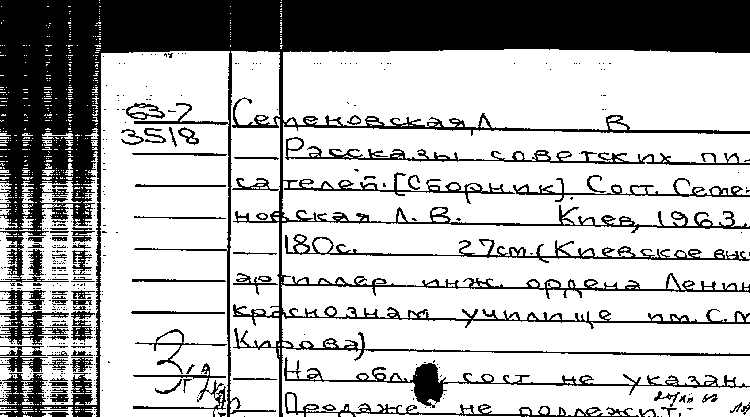 63-7
3518
Семеновская, Л В
Рассказы советских пи-
сателей. [Сборник]. Сост. Семе-
новская Л. В. Киев, 1963.
180с. 27см. (Киевское выс
артиллер. инж. ордена Ленин
краснознам. училище им. С. М
Кирова)
На обл. сост. не указан.
Продаже не подлежит.